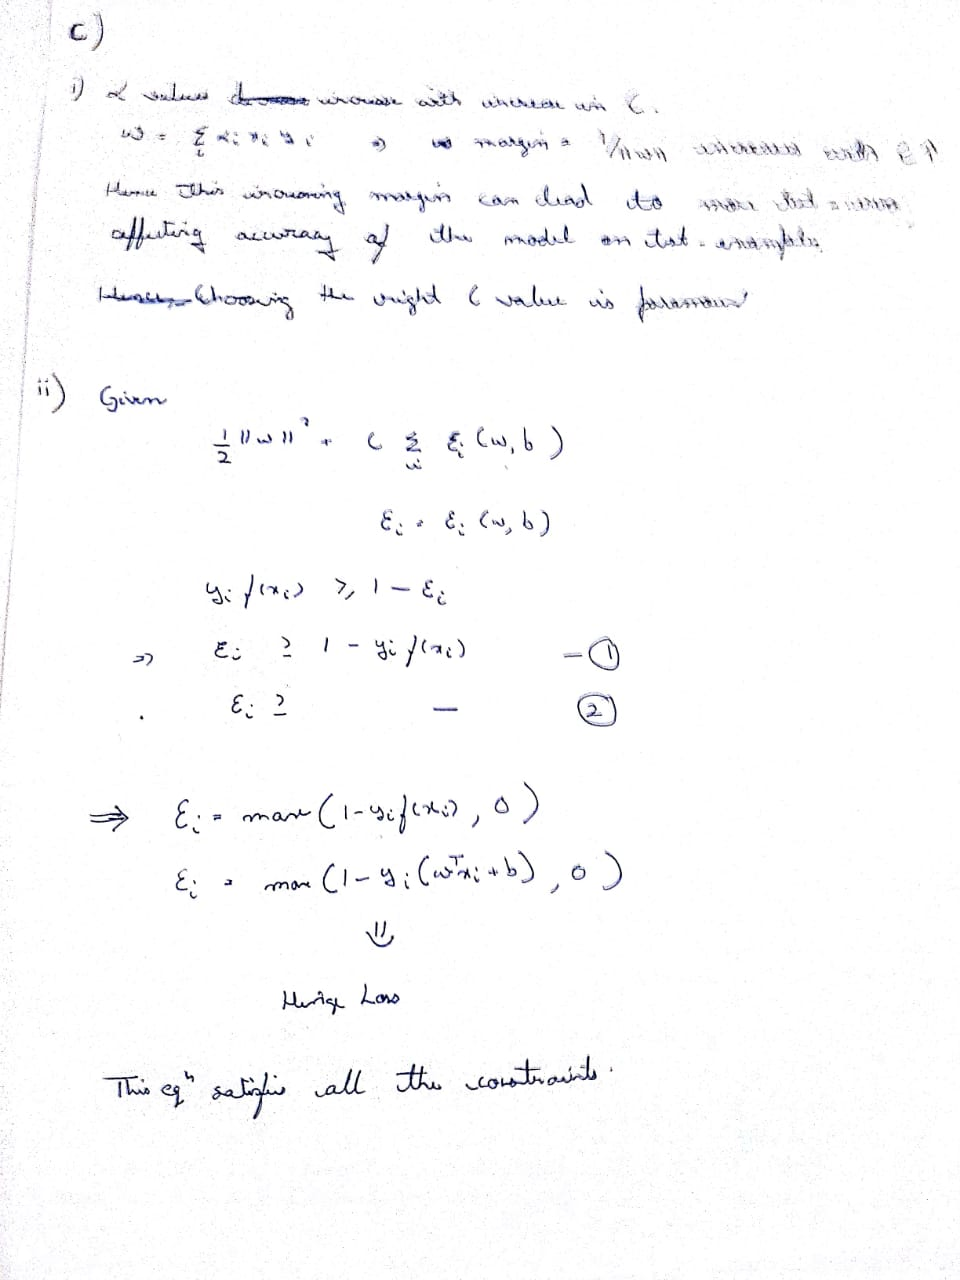 c)
i) α values increase with increase in C.
w = Σ_i α_i x_i y_i ⇒ margin = 1/||w|| increases with C↑
Hence This increasing margin can lead to more test
affecting accuracy of the model on test-examples.
Choosing the right C value is
ii) Given
1/2 ||w||² + C Σ_i ξ_i (w, b)
ξ_i = ξ_i (w, b)
y_i f(x_i) ≥ 1 - ξ_i
⇒ ξ_i ≥ 1 - y_i f(x_i) - ①
ξ_i ≥ - ②
⇒ ξ_i = max (1-y_i f(x_i), 0)
ξ_i = max (1-y_i (wᵀx_i + b), 0)
⇓
Hinge Loss
This eqⁿ satisfies all the constraints.